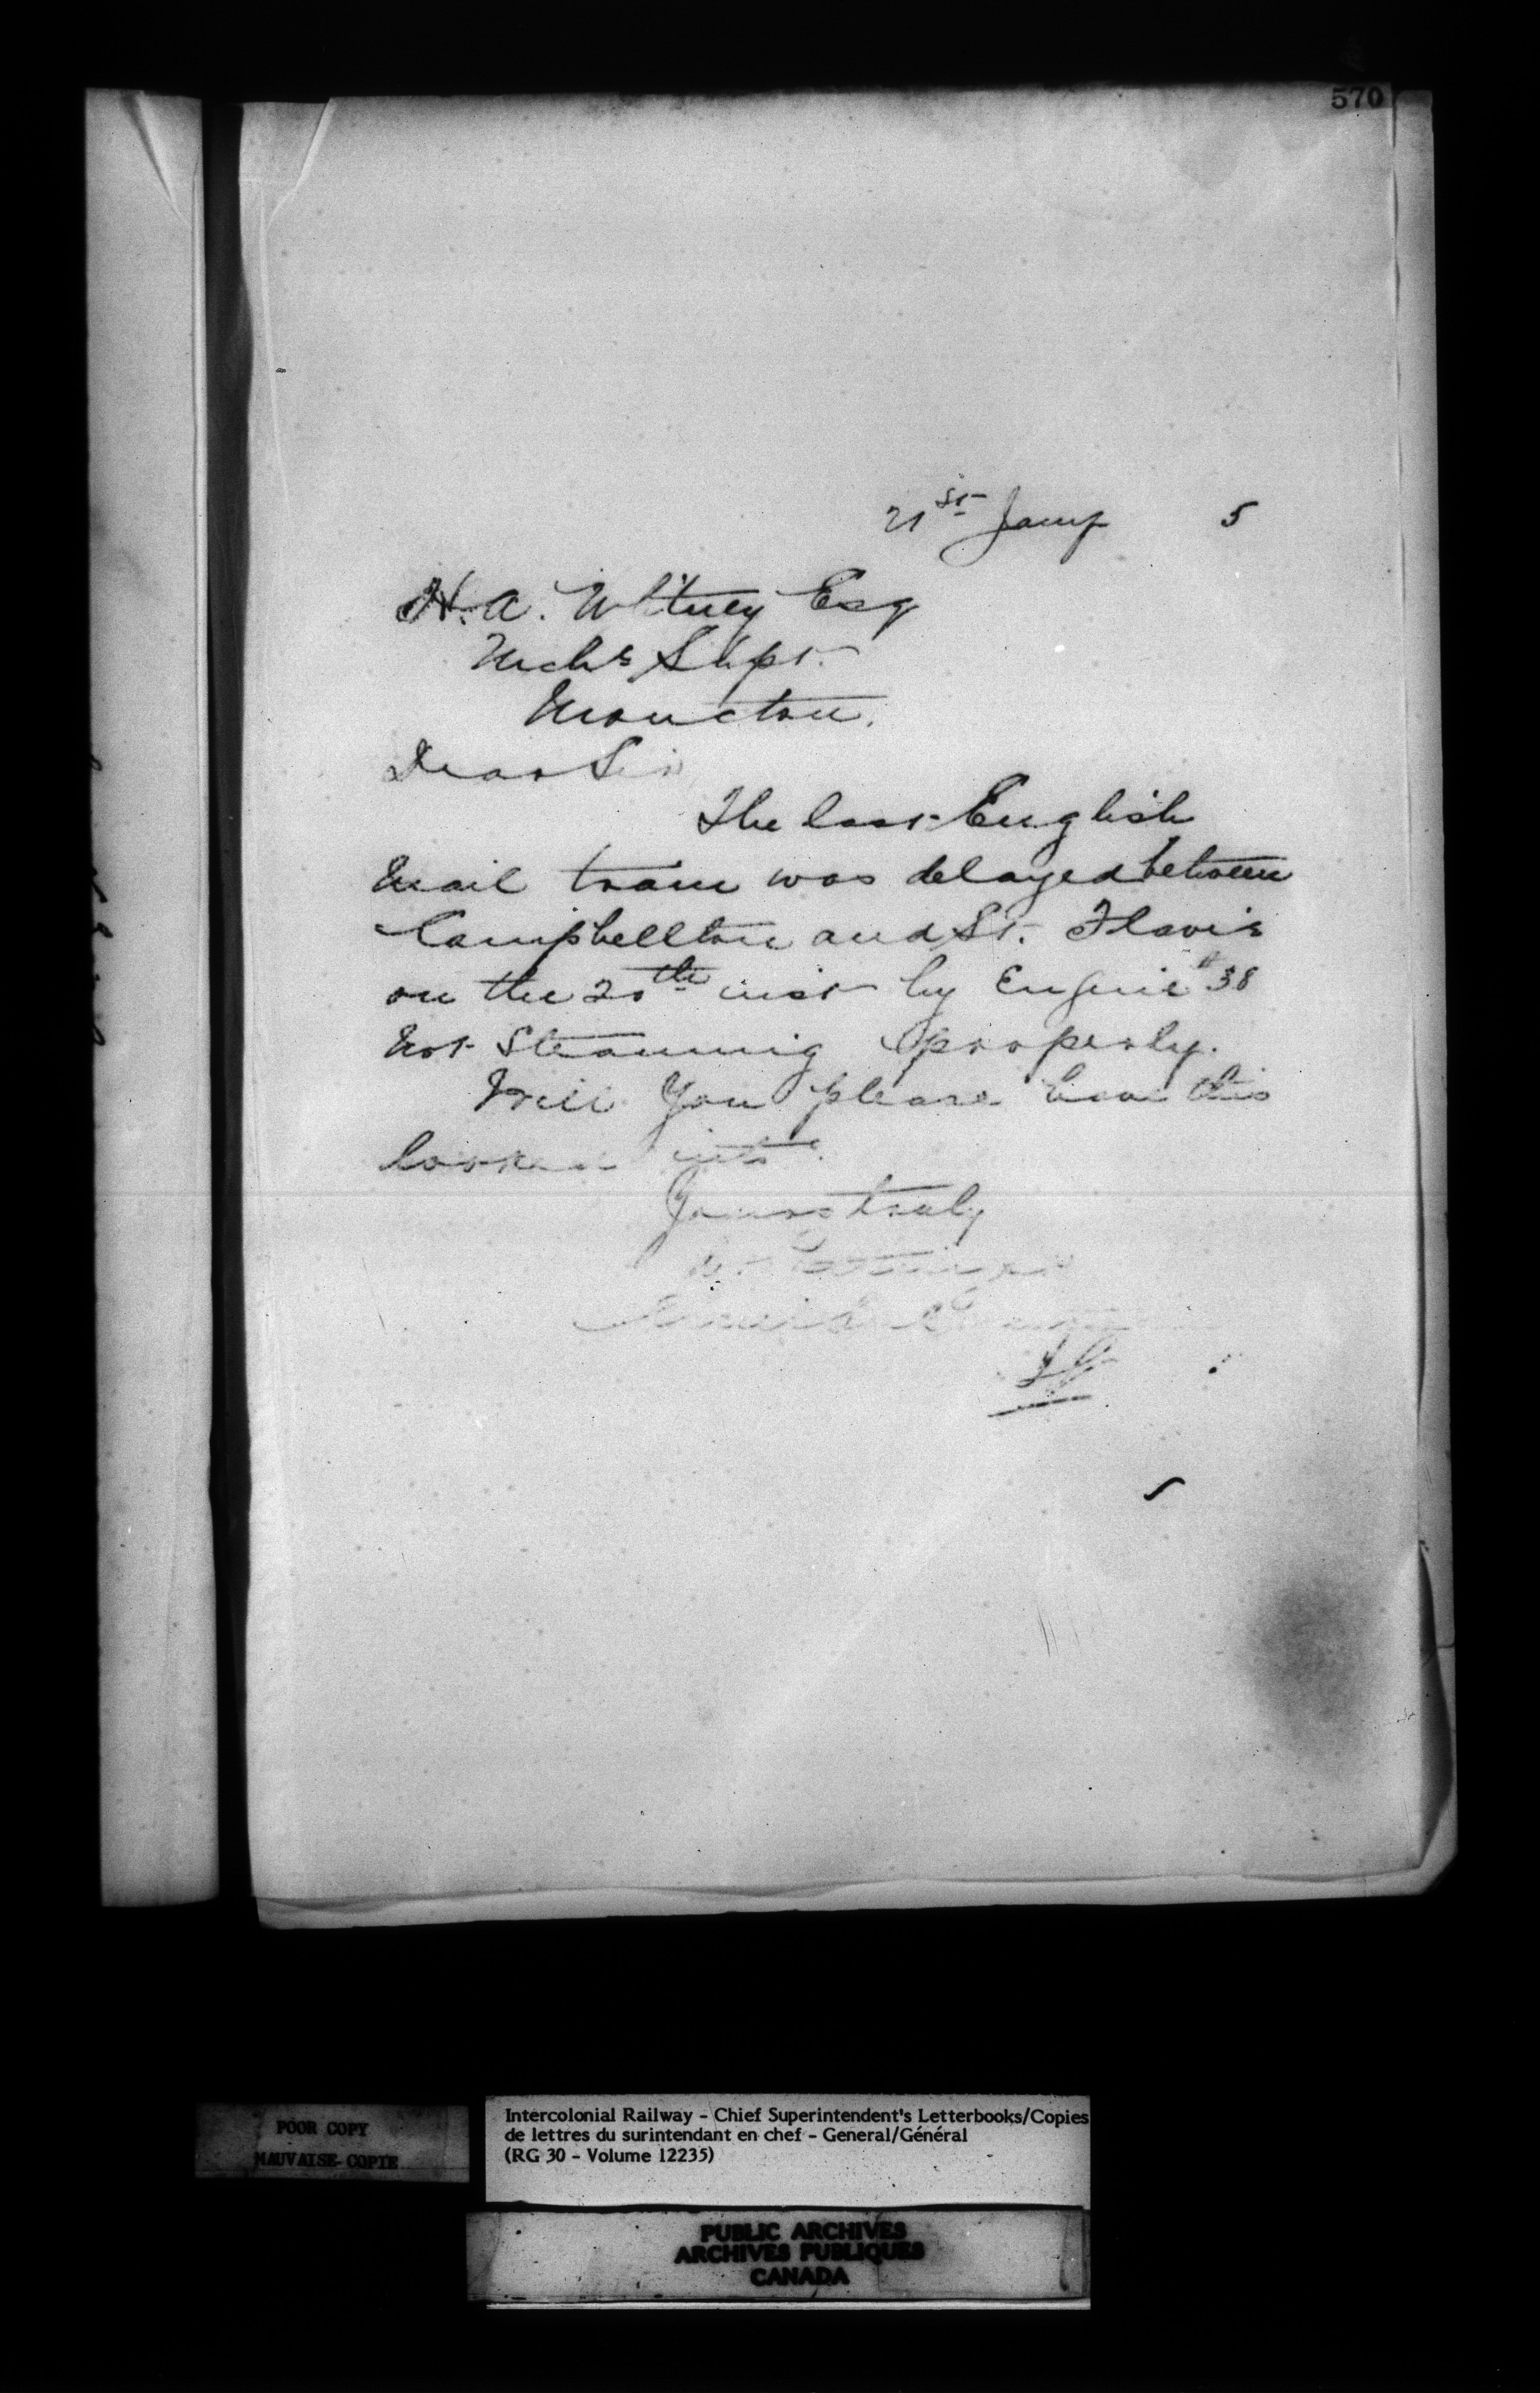 570
21st Jany 5
H. A. Whitney Esq
Mechl Supt.
Moncton.
Dear Sir
The last English
Mail train was delayed between
Campbellton and St. Flavie
on the 20th inst by Engine #38
not Steaming properly.
Will you please have this
looked into.
Yours truly
POOR COPY
MAUVAISE COPIE
Intercolonial Railway - Chief Superintendent's Letterbooks/Copies
de lettres du surintendant en chef - General/Général
(RG 30 - Volume 12235)
PUBLIC ARCHIVES
ARCHIVES PUBLIQUES
CANADA